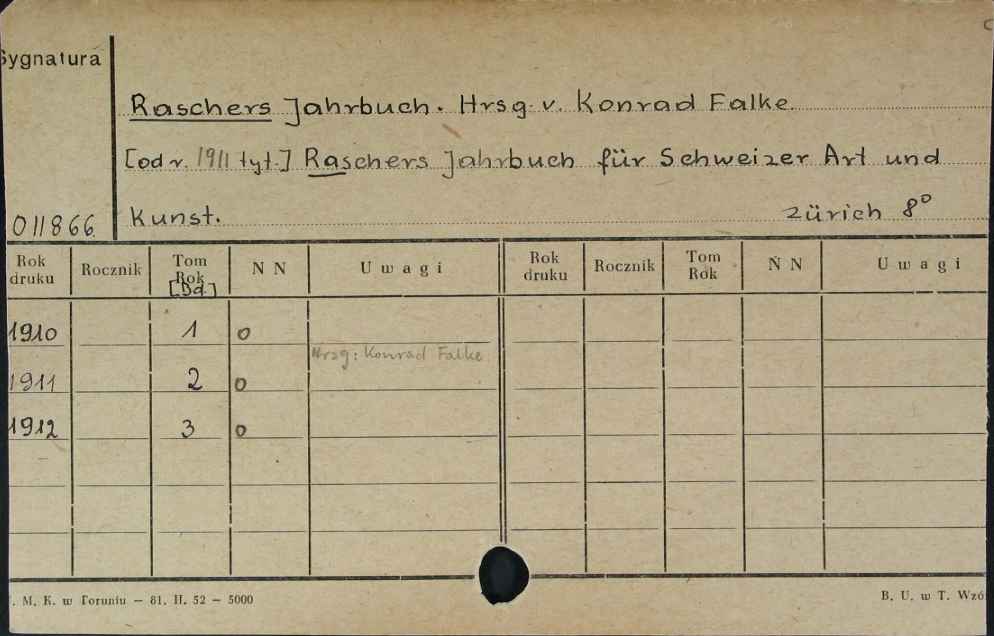 Sygnatura
Raschers Jahrbuch. Hrsg. v. Konrad Falke.
[od r. 1911 tyt.] Raschers Jahrbuch für Schweizer Art und
011866. Kunst. Zürich 8º
Rok druku Rocznik Tom Rok [Bd.] N N Uwagi Rok druku Rocznik Tom Rok N N Uwagi
1910 1 0
Hrsg: Konrad Falke
1911 2 0
1912 3 0
. M. K. w Toruniu — 81. II. 52 — 5000 B. U. w T. Wzó